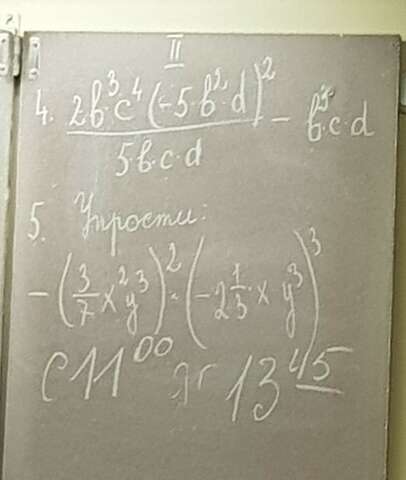 II
4. 2b³·c⁴(-5·b²·d)² / 5·b·c·d - b³·c·d
5. Упрости:
-(3/7 x²y³)² · (-2 1/3 · x y³)³
С 11⁰⁰ 13⁴⁵